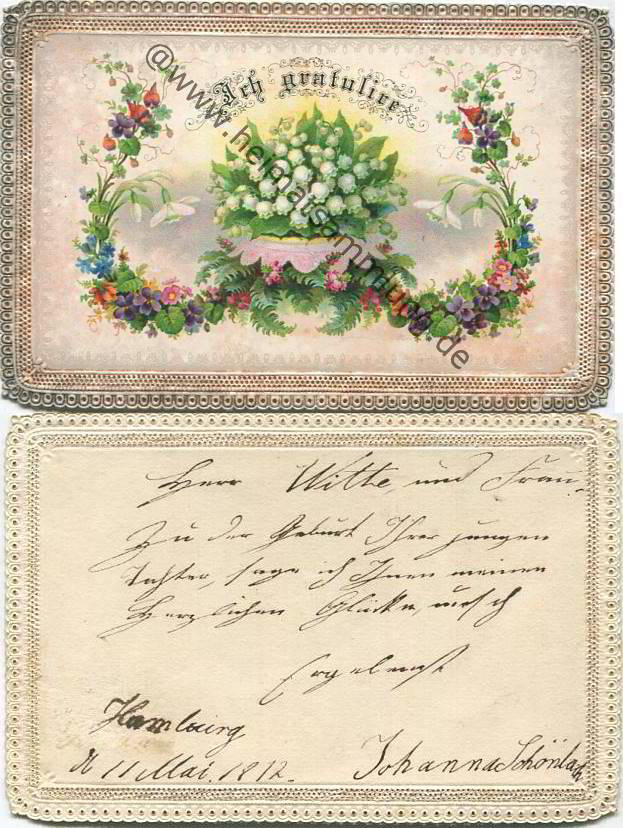 Ich gratulire
@www.heimatsammlung.de
Herr Witte, und Frau.
Zu der Geburt Ihrer jungen
Tochter, sage ich Ihnen meinen
Herzlichen Glückwunsch
Ergebenst
Hamburg
d 11 Mai. 1872.
Johanna Schönbach